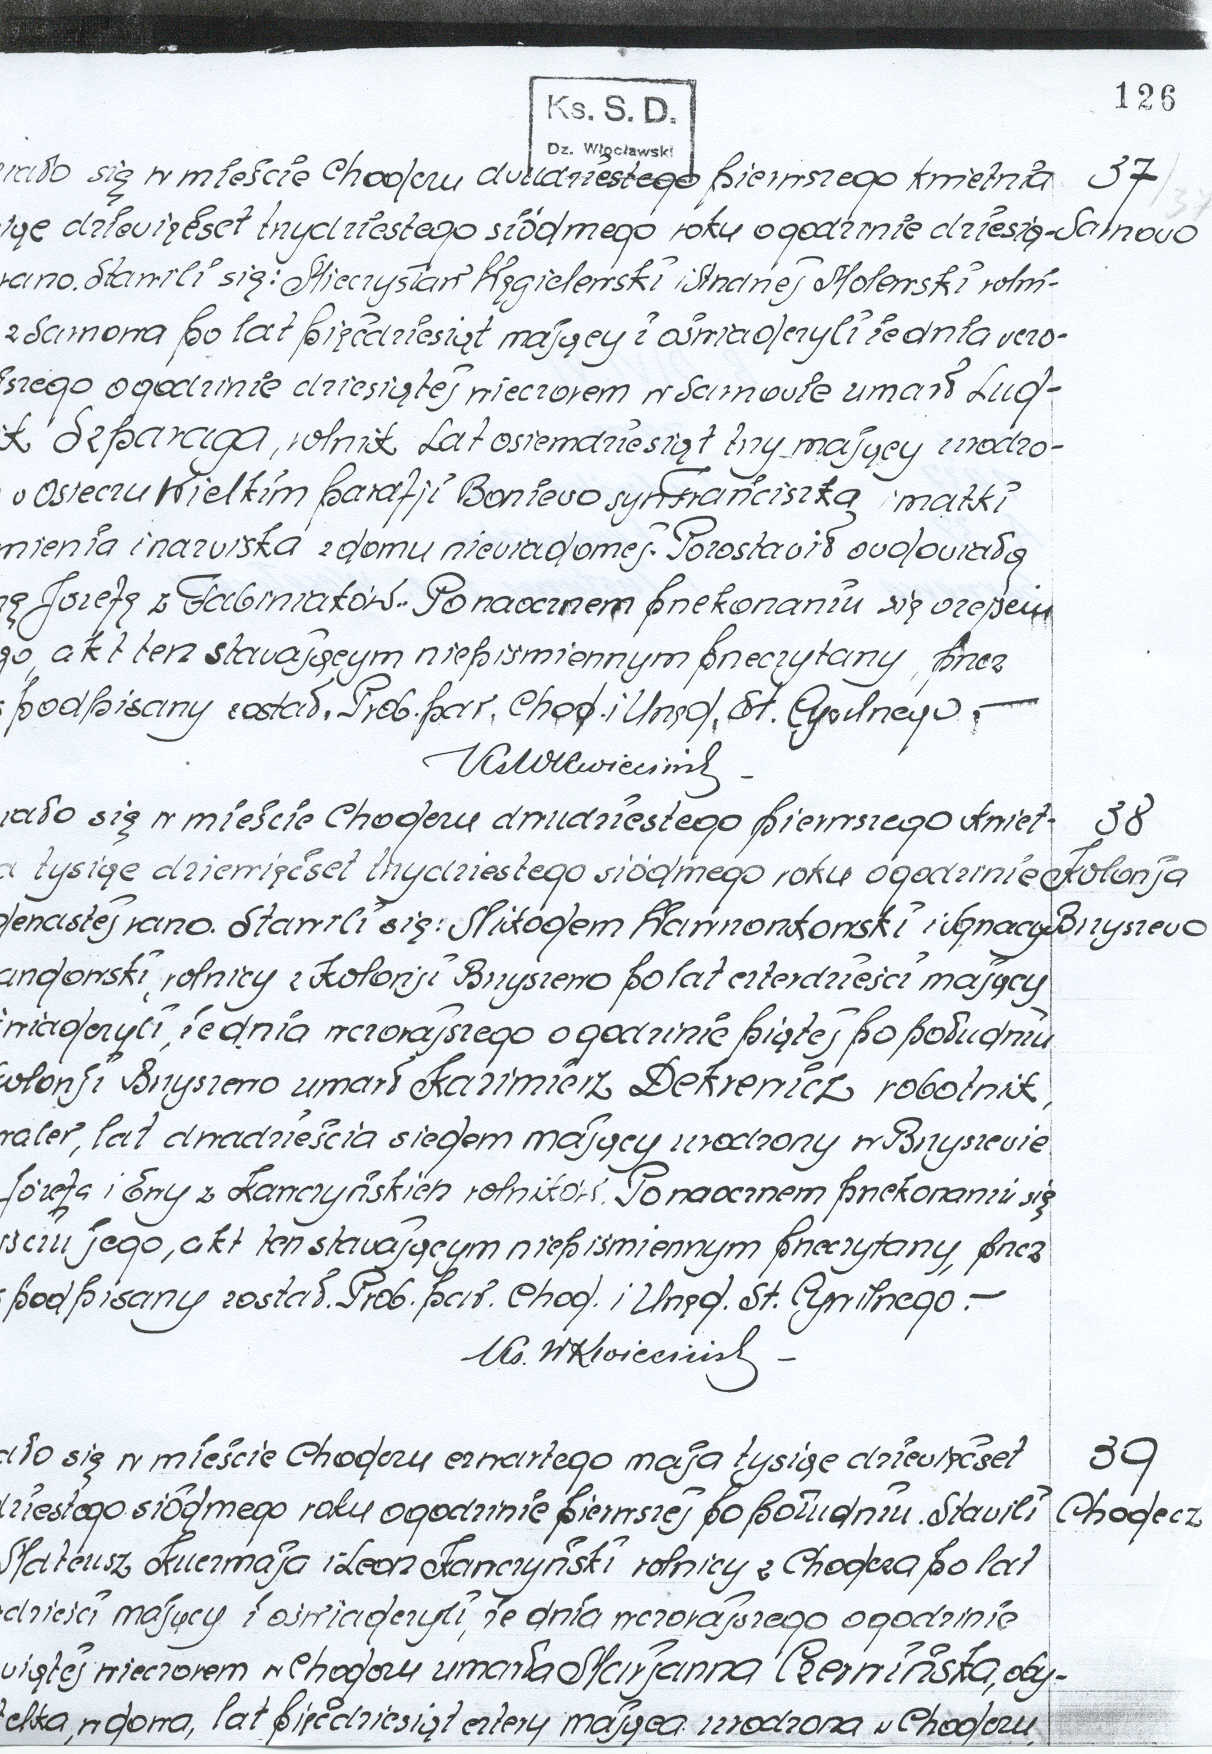 126
Ks. S. D.
Dz. Włocławski
się w mieście Chodczu dwudziestego pierwszego kwietnia 37
37
dziewięćset trzydziestego siódmego roku o godzinie dziesią- Sarnowo
rano. Stawili się: Mieczysław Kęgielewski i Andrzej Molewski rolni-
z Sarnowa po lat pięćdziesiąt mający i oświadczyli że dnia wczo-
szego o godzinie dziesiątej wieczorem w Sarnowie umarł Lud-
ik Szparaga, rolnik lat osiemdziesiąt trzy mający urodzo-
w Osieczu Wielkim parafji Boniewo syn Franciszka i matki
mienia i nazwiska z domu niewiadomej. Pozostawił owdowiałą
Józefę z Fabiniaków. Po naocznem przekonaniu się o zejściu
go, akt ten stawającym niepiśmiennym przeczytany, przez
podpisany został. Prob. par. Chod. i Urzęd. St. Cywilnego.—
Ks. W Kwieciński
się w mieście Chodczu dwudziestego pierwszego kwiet- 38
a tysiąc dziewięćset trzydziestego siódmego roku o godzinie Kolonja
denastej rano. Stawili się: Nikodem Hawronkowski i Ignacy Brzyszewo
andowski, rolnicy z Kolonji Brzyszewo po lat czterdzieści mający
wiadczyli, że dnia wczorajszego o godzinie piątej po południu
olonji Brzyszewo umarł Kazimierz Dekrewicz robotnik,
waler, lat dwadzieścia siedem mający urodzony w Brzyszewie
Józefa i Ewy z Kanczyńskich rolników. Po naocznem przekonaniu się
jściu jego, akt ten stawającym niepiśmiennym przeczytany, przez
podpisany został. Prob. par. Chod. i Urzęd. St. Cywilnego.—
Ks. W Kwieciński
ało się w mieście Chodczu czwartego maja tysiąc dziewięćset 39
dziestego siódmego roku o godzinie pierwszej po południu. Stawili Chodecz
Mateusz Kuczmaja i Leon Kanczyński rolnicy z Chodcza po lat
dzieści mający i oświadczyli, że dnia wczorajszego o godzinie
wiątej wieczorem w Chodczu umarła Marjanna Czerwińska, oby-
telka, wdowa, lat pięćdziesiąt cztery mająca urodzona w Chodczu,